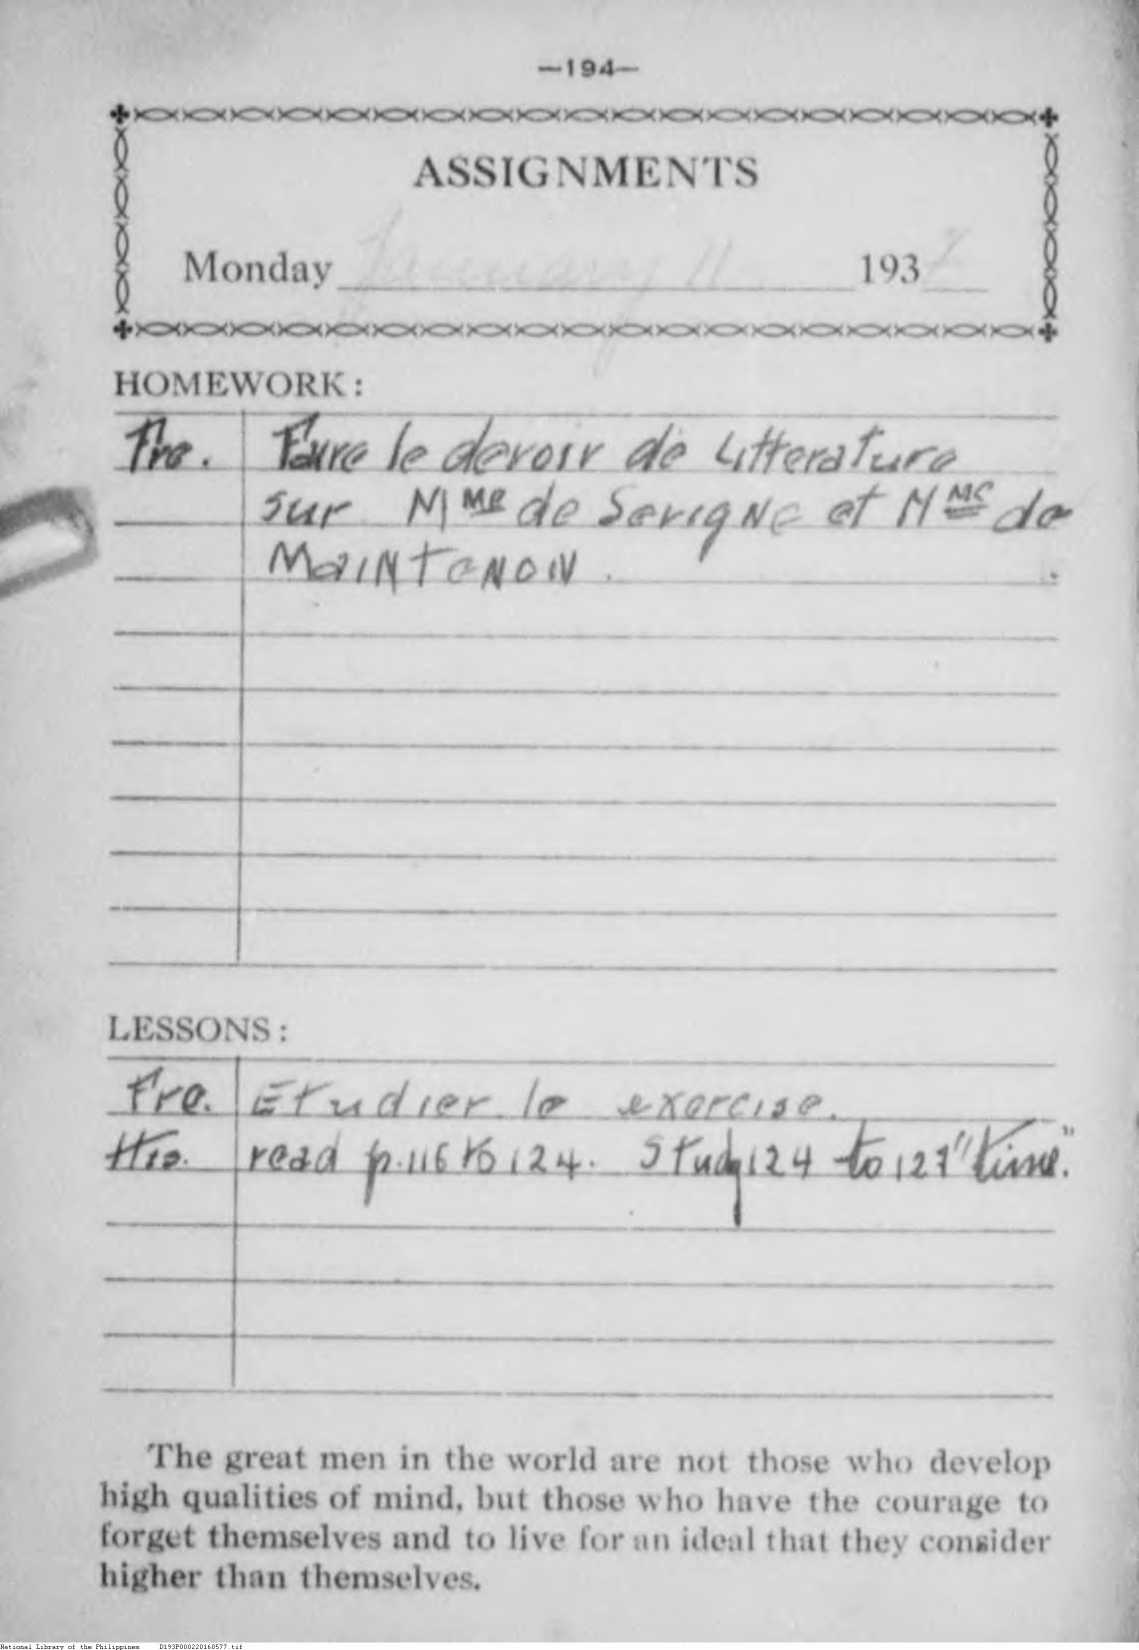 —194—
ASSIGNMENTS
Monday January 11 1937
HOMEWORK:
Fre. Faire le devoir de Litterature
sur Mme de Sevigne et Mme de
Maintenon.
LESSONS:
Fre. Etudier le exercise.
His. read p. 116 to 124. Study 124 to 127 "time."
The great men in the world are not those who develop
high qualities of mind, but those who have the courage to
forget themselves and to live for an ideal that they consider
higher than themselves.
National Library of the Philippines D193P000220160577.tif